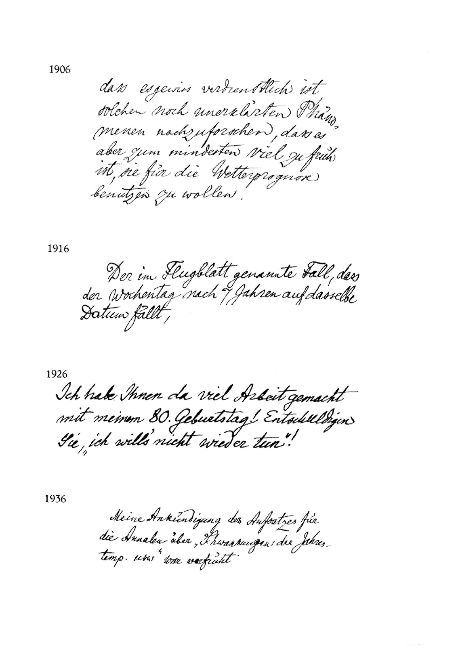 1906
dass es gewiss verdienstlich ist
solchen noch unerklärten Phäno-
menen nachzuforschen, dass es
aber zum mindesten viel zu früh
ist, sie für die Wetterprognose
benützen zu wollen.
1916
Der im Flugblatt genannte Fall, dass
der Wochentag nach 7 Jahren auf dasselbe
Datum fällt,
1926
Ich habe Ihnen da viel Arbeit gemacht
mit meinem 80. Geburtstag! Entschuldigen
Sie, „ich will's nicht wieder tun"!
1936
Meine Ankündigung des Aufsatzes für
die Annalen über „Schwankungen der Jahres-
temp. usw" war verfrüht